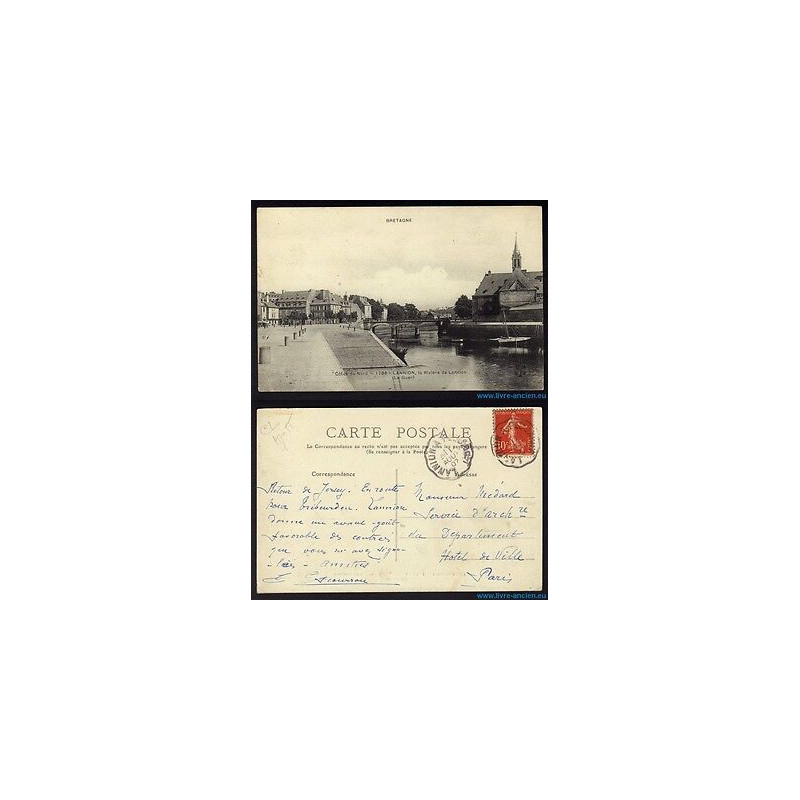 BRETAGNE
Côtes du Nord - LANNION, la Rivière de Lannion
(Le Guer)
www.livre-ancien.eu
CARTE POSTALE
La Correspondance au recto n'est pas acceptée par tous les pays étrangers
(Se renseigner à la Poste)
LANNION
Correspondance
Adresse
Retour de Jersey. En route
pour Trébeurden. Lannion
donne un avant-goût
favorable des contrées
que vous m'avez signa-
lées - amitiés
Monsieur Médard
Service d'Archre
du Département
Hotel de Ville
Paris
www.livre-ancien.eu